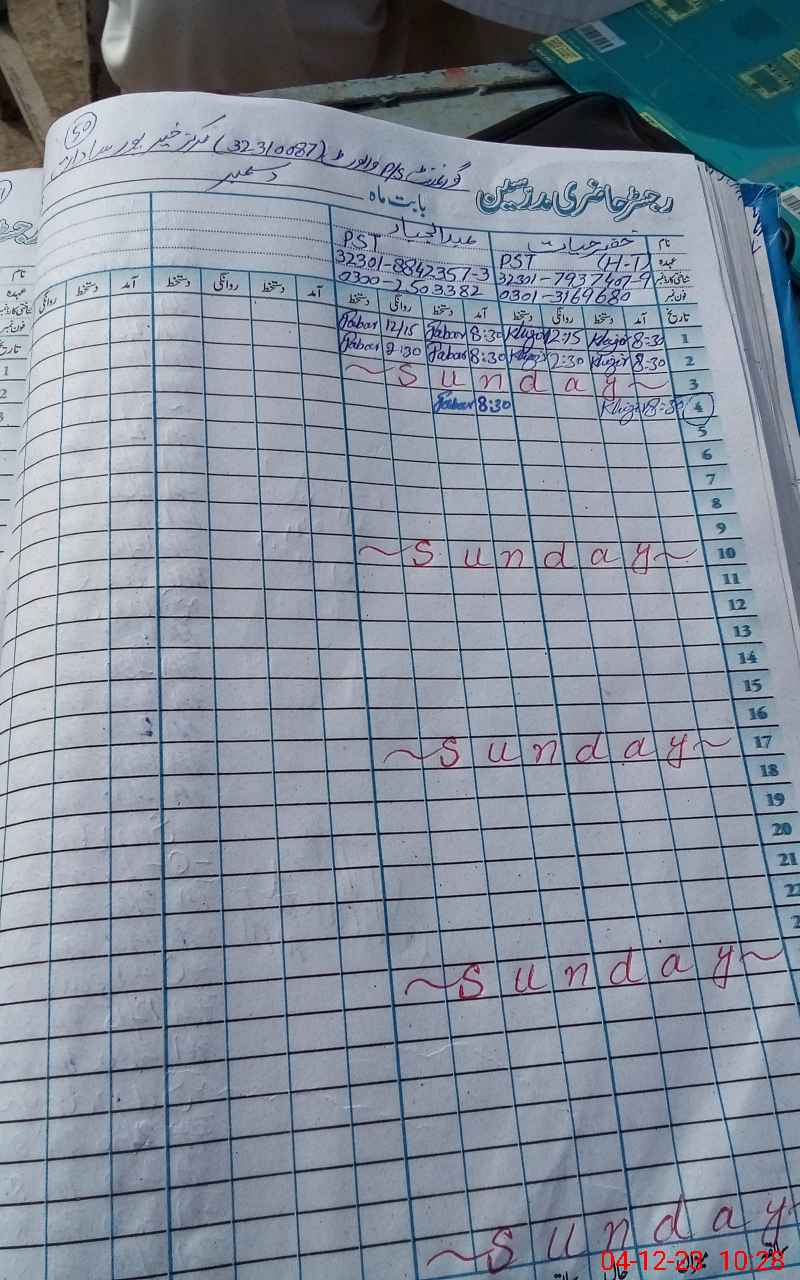 50
گورنمنٹ P/S (32310087) مرکز خیر پور سادات
رجسٹر حاضری مدرسین
بابت ماہ دسمبر
نام خضر حیات عبدالجبار
عہدہ PST (H-T) PST
شناختی کارڈ نمبر 32301-7937407-9 32301-8842357-3
فون نمبر 0301-3169680 0300-2503382
تاریخ آمد دستخط روانگی دستخط آمد دستخط روانگی دستخط آمد دستخط روانگی دستخط آمد دستخط روانگی
1 8:30 Khizir 12:15 Khizir 8:30 Jabar 12/15 Jabar
2 8:30 Khizir 2:30 Khizir 8:30 Jabar 2:30 Jabar
3 ~Sunday~
4 8:30 Khizir 8:30 Jabar
5
6
7
8
9
10 ~Sunday~
11
12
13
14
15
16
17 ~Sunday~
18
19
20
21
22
2
~Sunday~
~Sunday
04-12-23 10:28
نام
عہدہ
فون نمبر
تاریخ
1
2
3